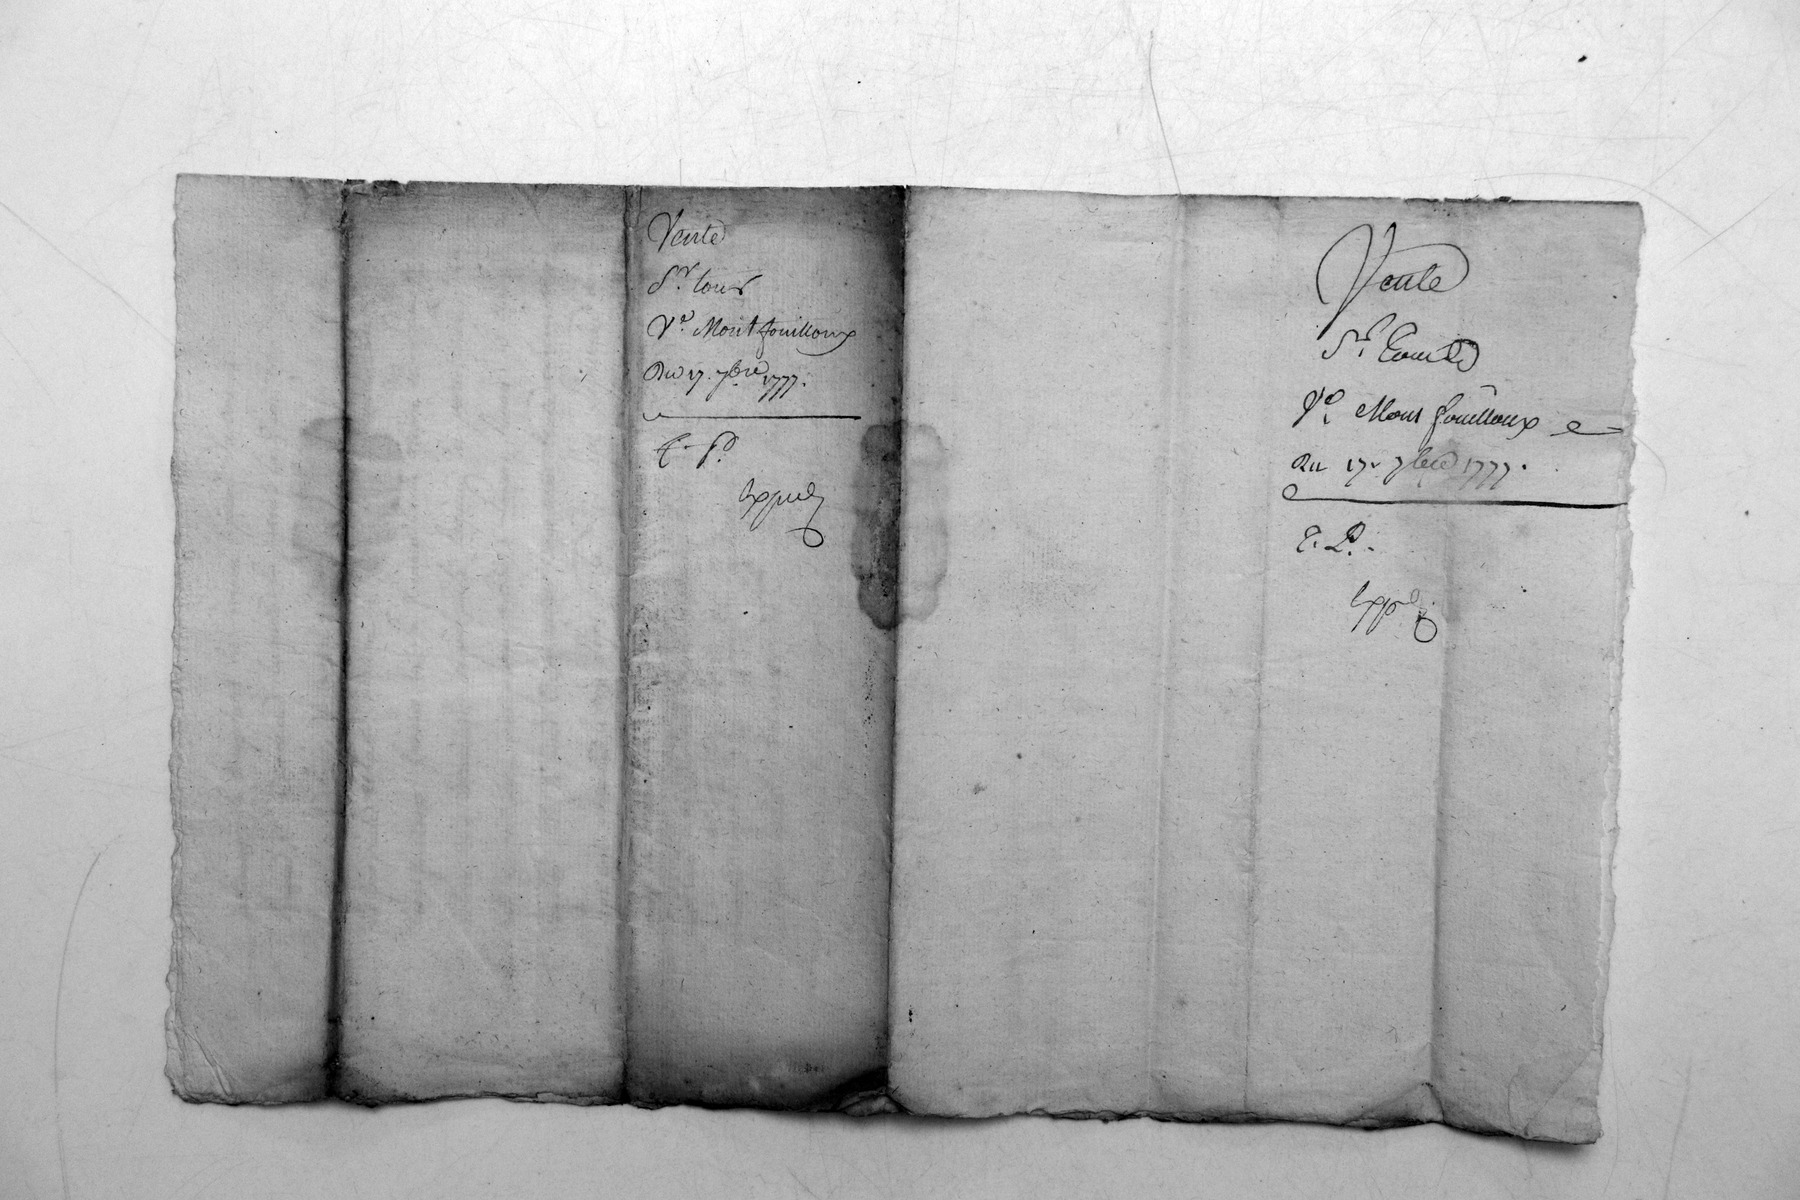 Vente
Sr. Tour
Ve. Montfouilloux
Du 17. 7bre 1777.
E. P.
Expié
Vente
Sr.
Ve. Mont fouilloux
du 17. 7bre 1777.
E. P.